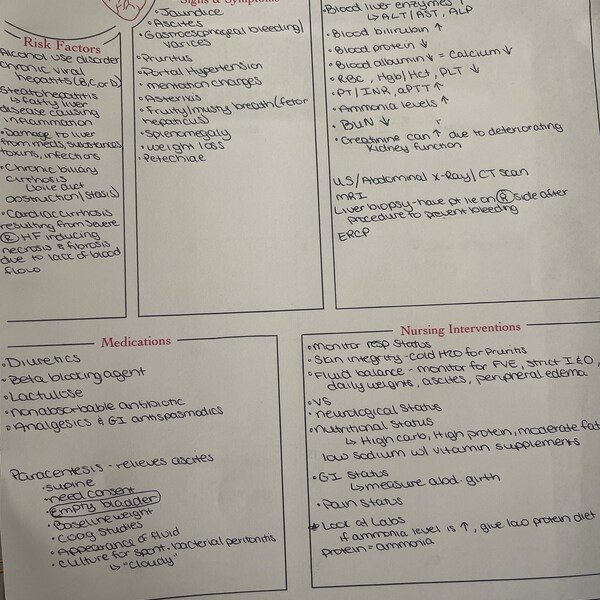 Risk Factors
Alcohol use disorder
chronic viral
hepatitis (B, C, or D)
Steatohepatitis
is fatty liver
disease causing
inflammation
•Damage to liver
from meds, substances,
toxins, infections
•Chronic biliary
cirrhosis
(bile duct
obstruction/stasis)
•Cardiac cirrhosis
resulting from severe
Ⓡ HF inducing
necrosis & fibrosis
due to lack of blood
flow
Signs & Symptoms
•Jaundice
•Ascites
•Gastroesophageal bleeding/
varices
•Pruritus
•Portal Hypertension
•mentation changes
•Asterixis
•Fruity/musty breath (fetor
hepaticus)
•Splenomegaly
•weight loss
•Petechiae
•Blood liver enzymes ↑
↳ ALT/AST, ALP
•Blood bilirubin ↑
•Blood protein ↓
•Blood albumin ↓ = Calcium ↓
•RBC, Hgb/Hct, PLT ↓
•PT/INR, aPTT ↑
•Ammonia levels ↑
•BUN ↓
•Creatinine can ↑ due to deteriorating
Kidney function
US/Abdominal X-Ray/CT scan
MRI
Liver biopsy-have pt lie on Ⓡ side after
procedure to prevent bleeding
ERCP
Medications
•Diuretics
•Beta blocking agent
•Lactulose
•nonabsorbable antibiotic
•Analgesics & GI antispasmodics
Paracentesis - relieves ascites
•supine
•need consent
•Empty bladder
•Baseline weight
•Coag Studies
•Appearance of fluid
•culture for spont. bacterial peritonitis
↳ "cloudy"
Nursing Interventions
•monitor resp status
•Skin integrity-cold H2O for pruritis
•Fluid balance - monitor for FVE, strict I&O,
daily weights, ascites, peripheral edema
•VS
•neurological status
•Nutritional status
↳ High carb, High protein, moderate fat
low sodium w/ vitamin supplements
•GI status
↳measure abd. girth
•Pain status
* Look at Labs
if ammonia level is ↑, give low protein diet
protein = ammonia